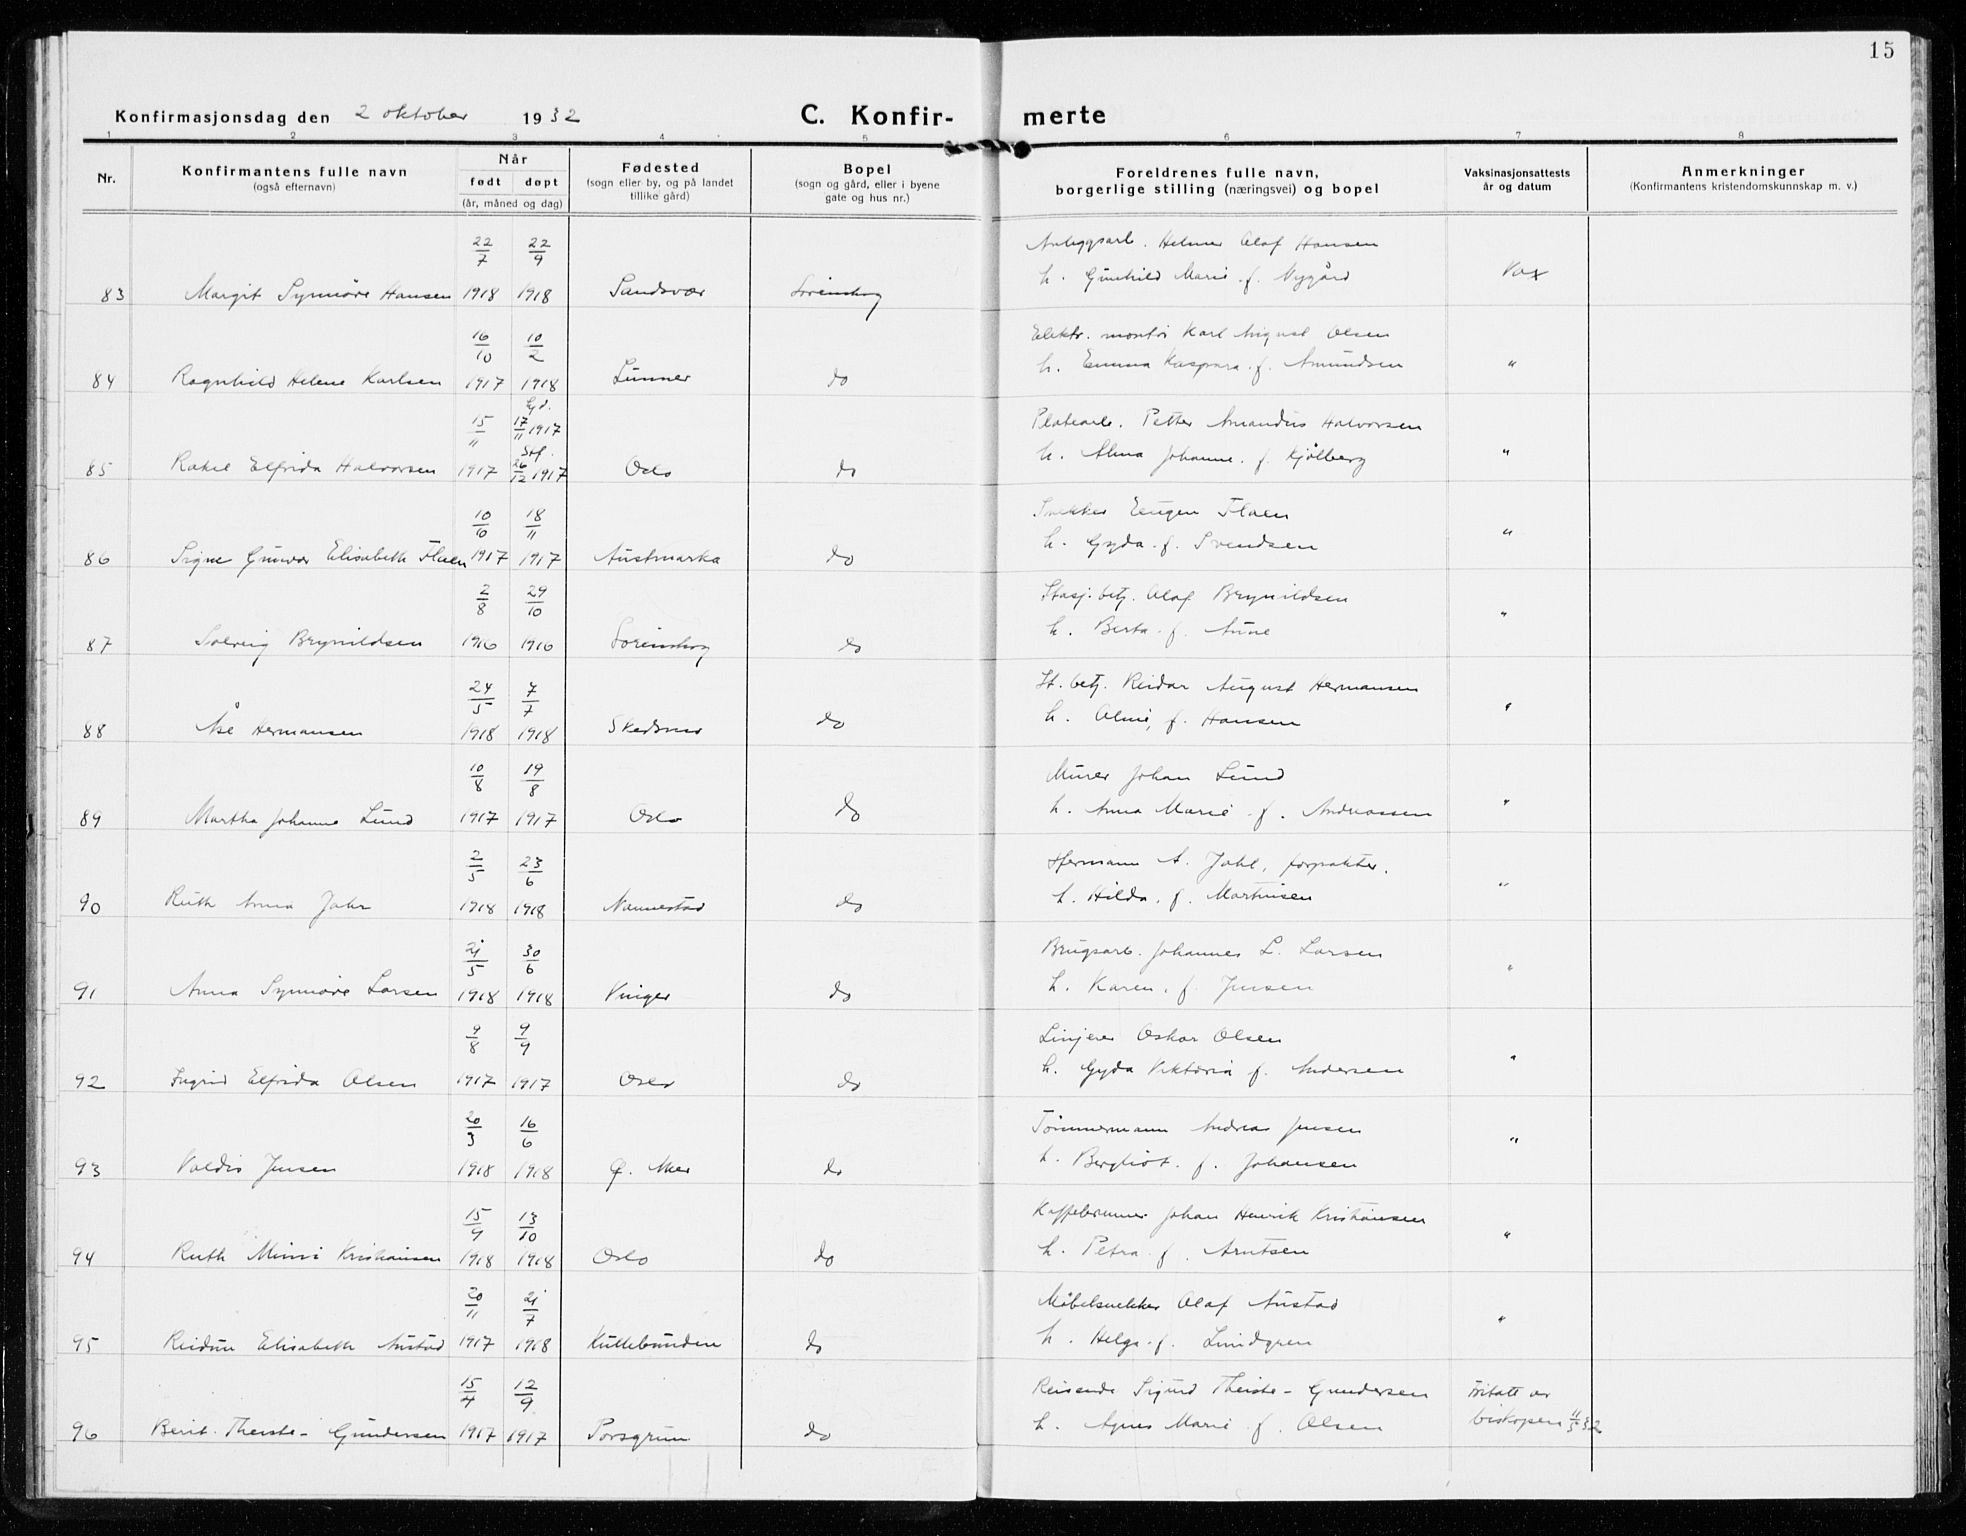 15
Konfirmasjonsdag den 2 oktober 1932
C. Konfir- merte
1 2 3 4 5 6 7 8
Nr.
Konfirmantens fulle navn
(også efternavn)
Når
født døpt
(år, måned og dag)
Fødested
(sogn eller by, og på landet
tillike gård)
Bopel
(sogn og gård, eller i byene
gate og hus nr.)
Foreldrenes fulle navn,
borgerlige stilling (næringsvei) og bopel
Vaksinasjonsattests
år og datum
Anmerkninger
(Konfirmantens kristendomskunnskap m. v.)
22/7 22/9 Anleggsarb. Helmer Olaf Hansen
83 Margit Synnøve Hansen 1918 1918 Sandsvær Lørenskog h. Gunhild Marie f. Nygård Vax
16/10 10/2 Elektr. montør Karl August Olsen
84 Ragnhild Helene Karlsen 1917 1918 Lunner do h. Emma Kaspara f. Amundsen "
15/11 Hjd. 17/11 1917 Platearb. Petter Amandus Halvorsen
85 Rakel Elfrida Halvorsen 1917 Stf. 26/12 1917 Oslo do h. Alma Johanne f. Kjølberg "
10/10 18/11 Snekker Eugen Flaen
86 Signe Gunvor Elisabeth Flaen 1917 1917 Austmarka do h. Gyda f. Svendsen "
2/8 29/10 Stasj. betj. Olaf Brynildsen
87 Solveig Brynildsen 1916 1916 Lørenskog do h. Berta f. Aune "
24/5 7/7 St. betj. Reidar August Hermansen
88 Åse Hermansen 1918 1918 Skedsmo do h. Alvie, f. Hansen "
10/8 19/8 Murer Johan Lund
89 Martha Johanne Lund 1917 1917 Oslo do h. Anna Marie f. Andreassen "
2/5 23/6 Hermann A. Jahr, forpakter.
90 Ruth Anna Jahr 1918 1918 Nannestad do h. Hilda, f. Martinsen "
21/5 30/6 Brugsarb. Johannes L. Larsen
91 Anna Synnøve Larsen 1918 1918 Vinger do h. Karen, f. Jensen "
9/8 9/9 Linjerer Oskar Olsen
92 Ingrid Elfrida Olsen 1917 1917 Oslo do h. Gyda Viktoria f. Andersen "
20/3 16/6 Tømmermann Andreas Jensen
93 Valdis Jensen 1918 1918 Ø. Aker do h. Bergliot f. Johansen "
15/9 13/10 Kaffebrenner Johan Henrik Kristiansen
94 Ruth Mimi Kristiansen 1918 1918 Oslo do h. Petra f. Arntsen "
20/11 21/7 Møbelsnekker Olaf Austad
95 Reidun Elisabeth Austad 1917 1918 Kullebunden do h. Helga f. Lindgren "
15/4 12/9 Reisende Sigurd Theiste-Gundersen Fritatt av
96 Berit Theiste-Gundersen 1917 1917 Porsgrunn do h. Agnes Marie f. Olsen biskopen 11/5 32